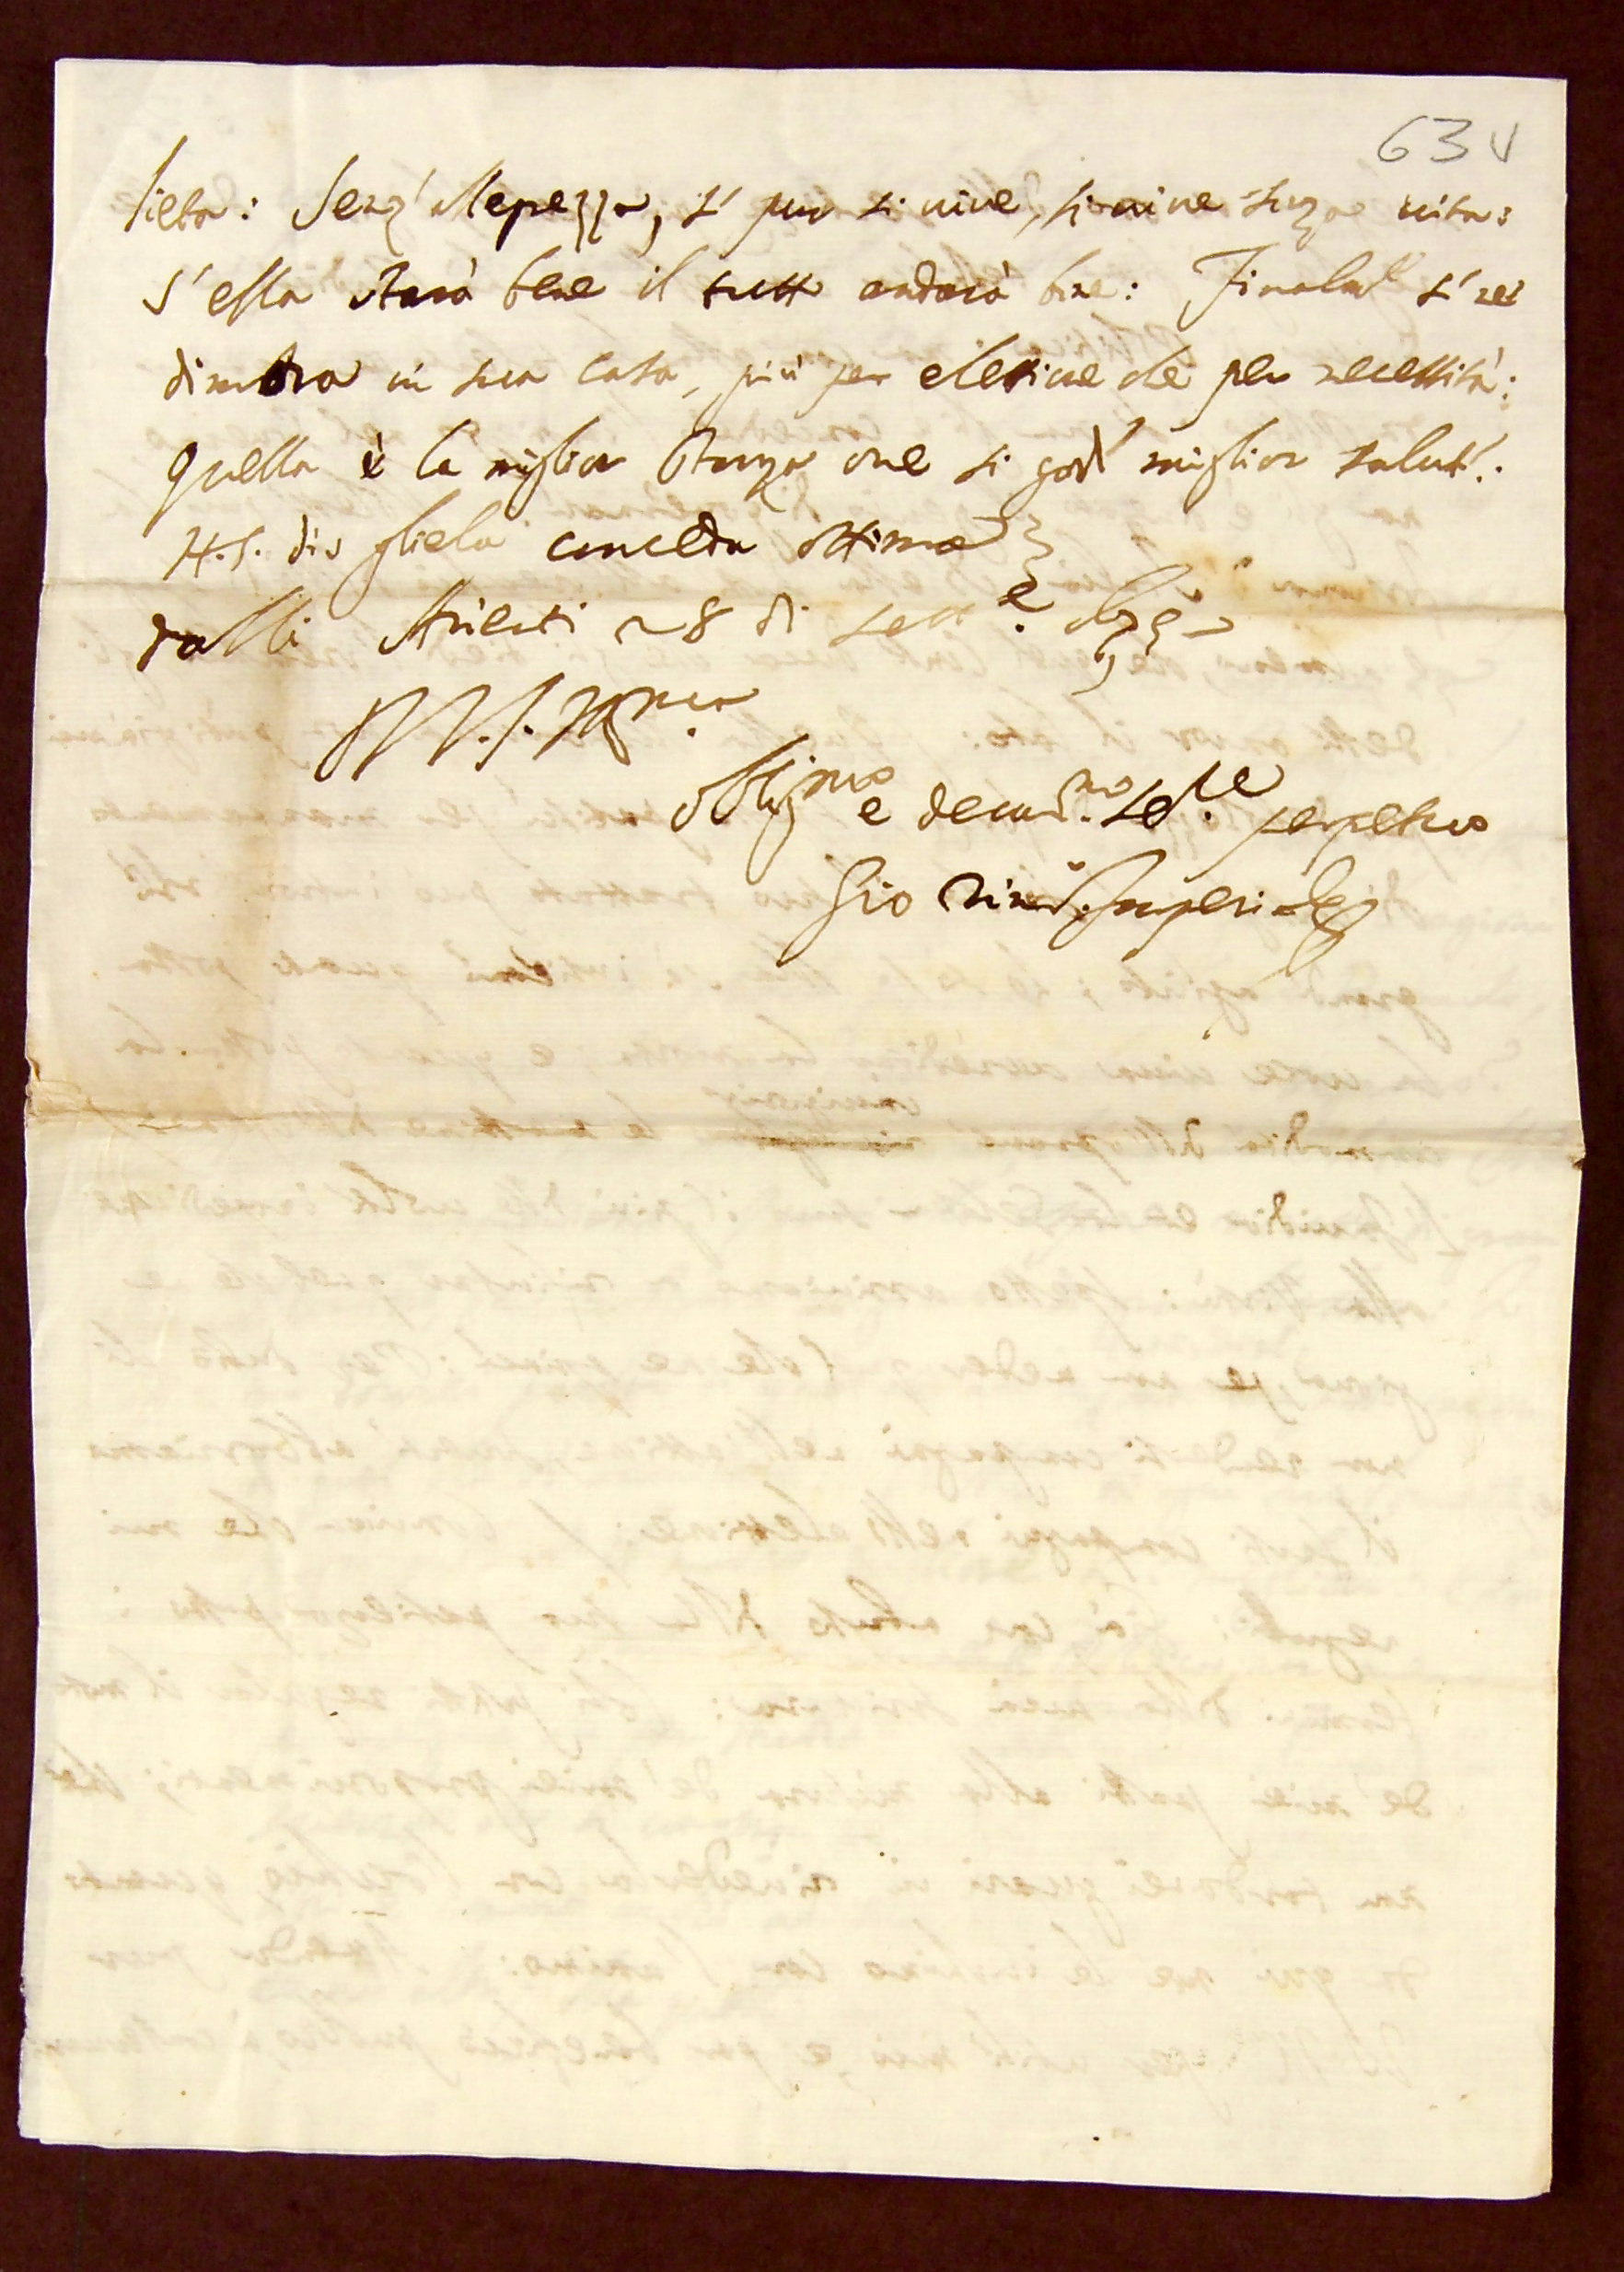 63 v
lieta: Senz'allegrezza, s' pur si vive, si vive senza vita:
S'ella starà bene il tutto andarà bene: Finalmte s'ne
dimora in sua casa, più per elettione che per necessità:
Quella è la miglior stanza ove si gode miglior salute:
N.S. dio gliela conceda ottima
dalli 28 di sette
di V.S. Illma
obligmo e devotmo serre perpetuo
Gio Vincº Imperiale